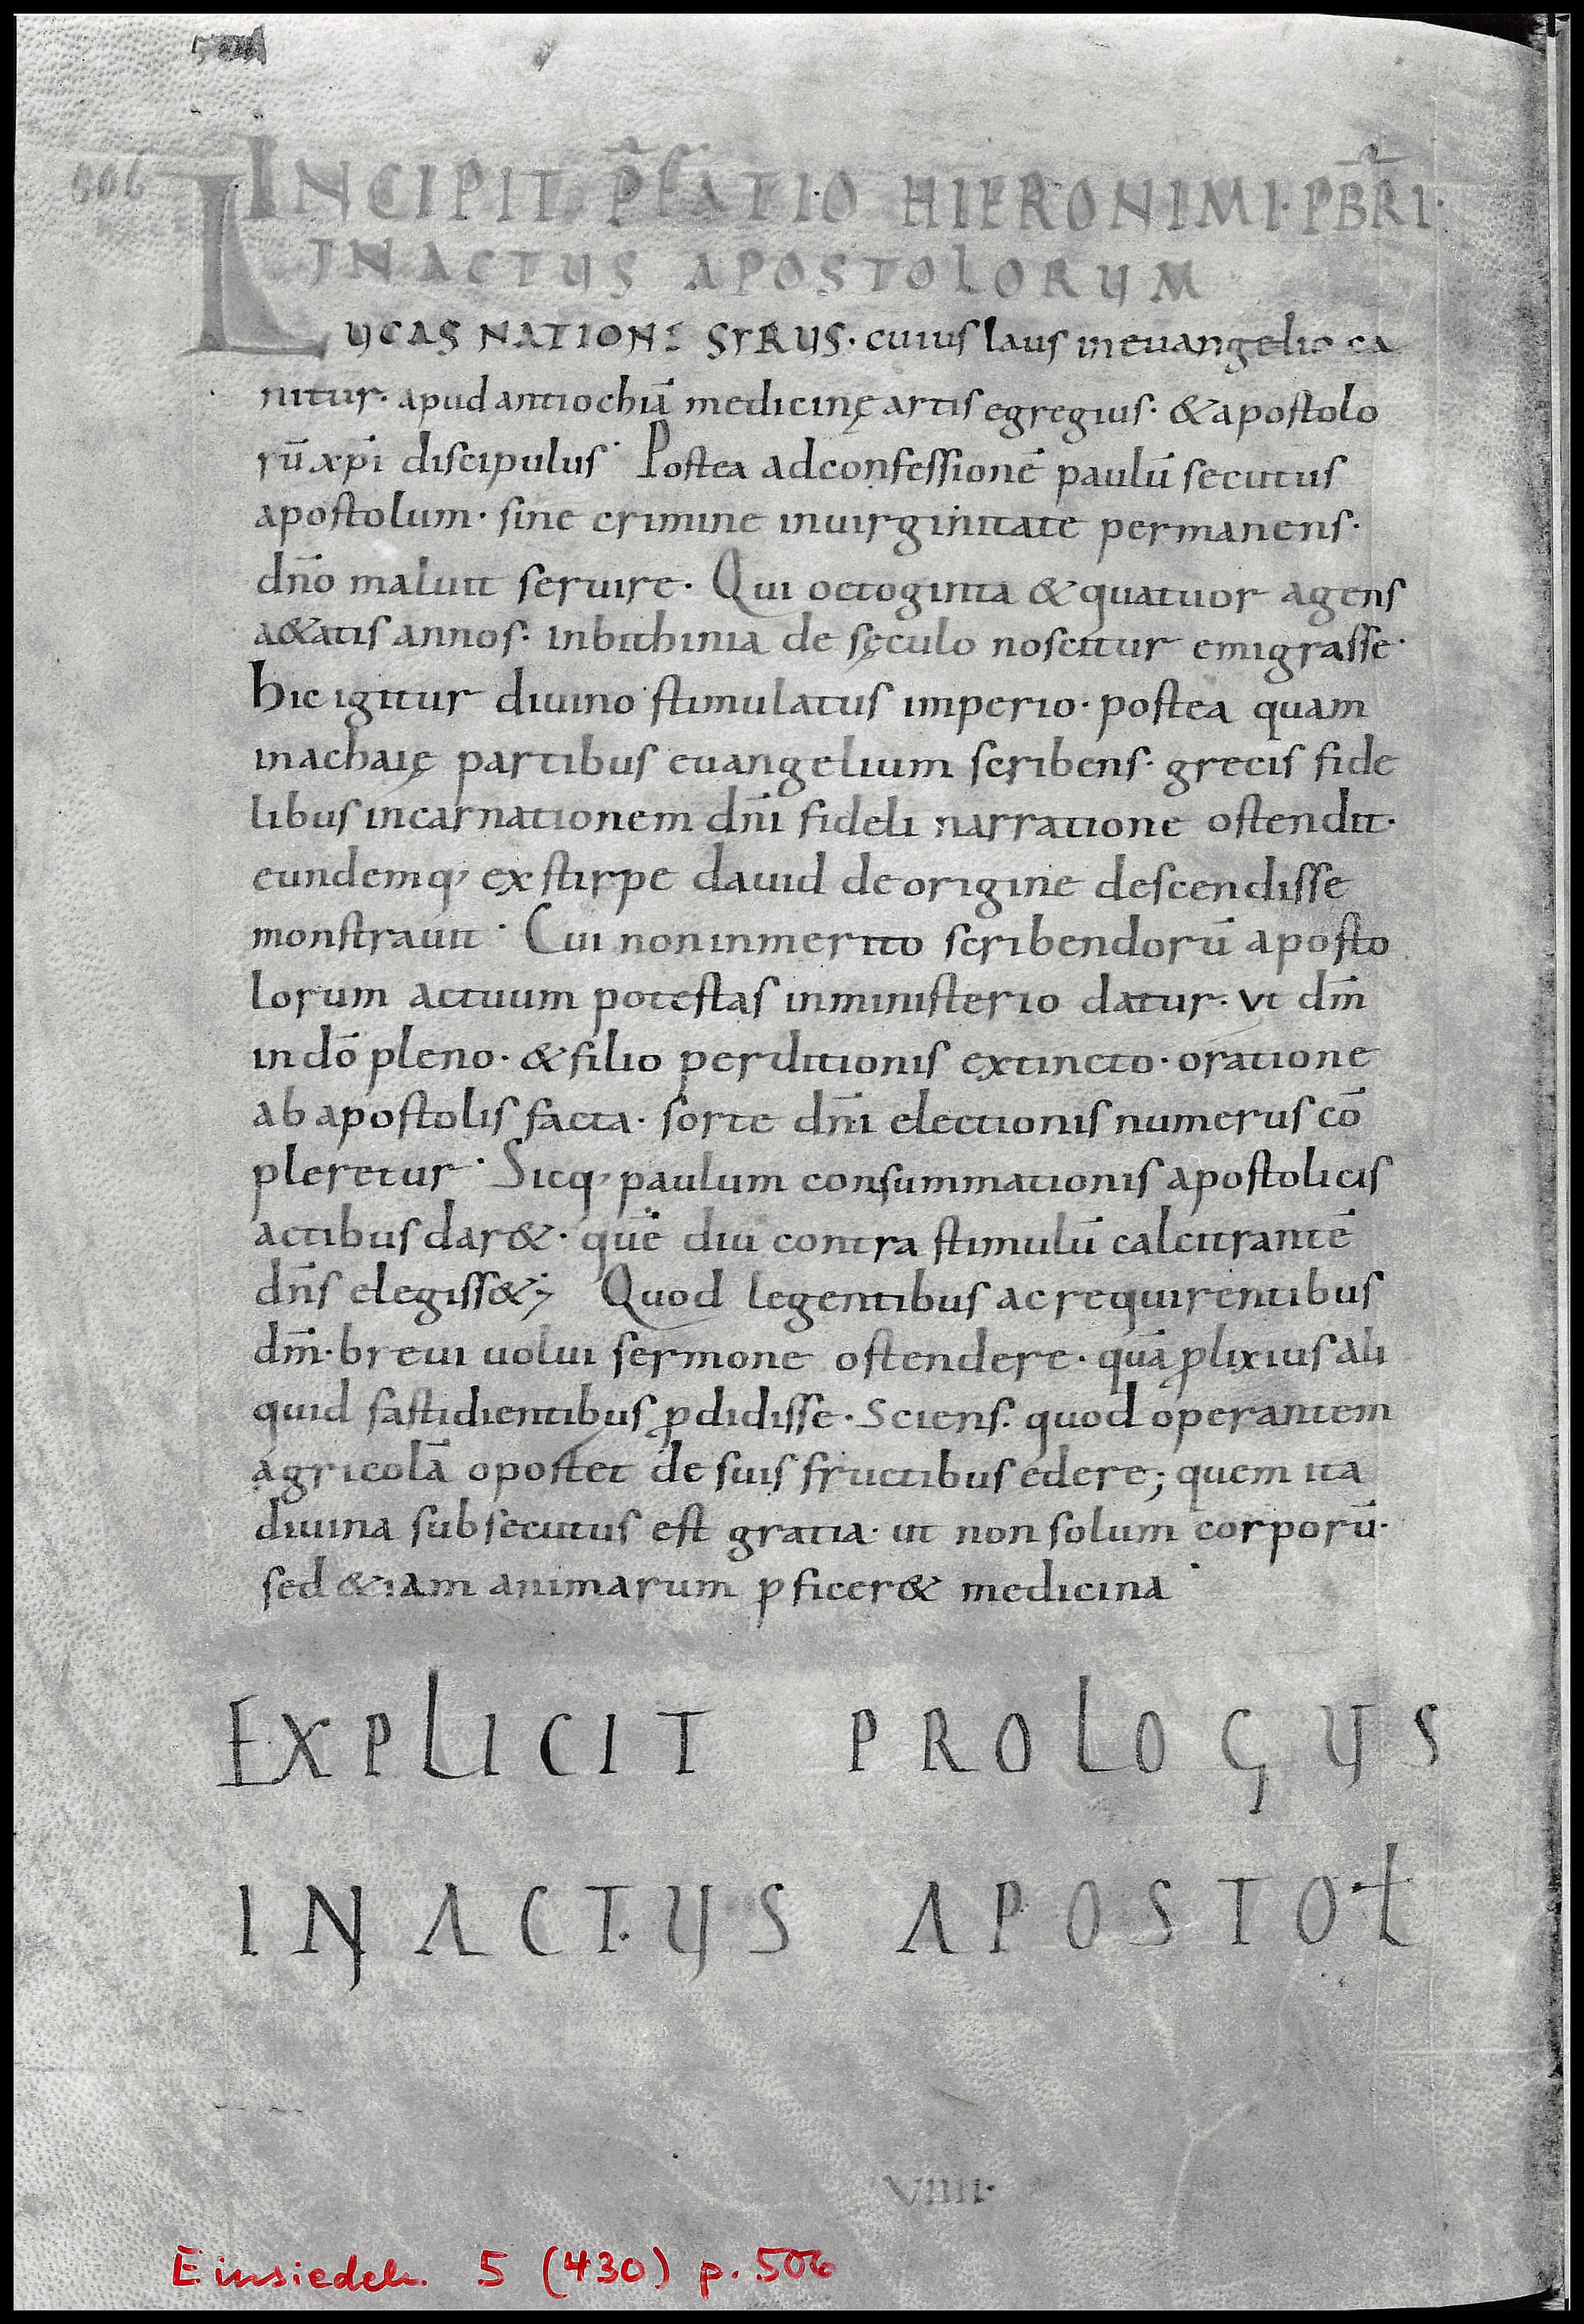 506
INCIPIT P̄FATIO HIERONIMI · PB̄RI ·
IN ACTUS APOSTOLORUM
LUCAS NATIONE SYRUS · cuius laus in euangelio ca
nitur · apud antiochiā medicinę artis egregius · & apostolo
rū xp̄i discipulus · Postea ad confessionē paulū secutus
apostolum · sine crimine in uirginitate permanens ·
dn̄o maluit seruire · Qui octoginta & quatuor agens
a&atis annos · in bithinia de sęculo noscitur emigrasse ·
hic igitur diuino stimulatus imperio · postea quam
in achaię partibus euangelium scribens · grecis fide
libus incarnationem dn̄i fideli narratione ostendit ·
eundemq; ex stirpe dauid de origine descendisse
monstrauit · Cui non inmerito scribendorū aposto
lorum actuum potestas in ministerio datur · vt dm̄
in dō pleno · & filio perditionis extincto · oratione
ab apostolis facta · sorte dn̄i electionis numerus cō
pleretur · Sicq; paulum consummationis apostolicis
actibus dar& · quē diu contra stimulū calcitrantē
dn̄s elegiss&; Quod legentibus ac requirentibus
dm̄ · breui uolui sermone ostendere · quā ꝓlixius ali
quid fastidientibus ꝓdidisse · Sciens · quod operantem
agricolā opostet de suis fructibus edere; quem ita
diuina subsecutus est gratia · ut non solum corporū ·
sed &iam animarum ꝓficer& medicina ·
EXPLICIT PROLOGUS
IN ACTUS APOSTOƚ
VIIII ·
Einsiedeln 5 (430) p. 506